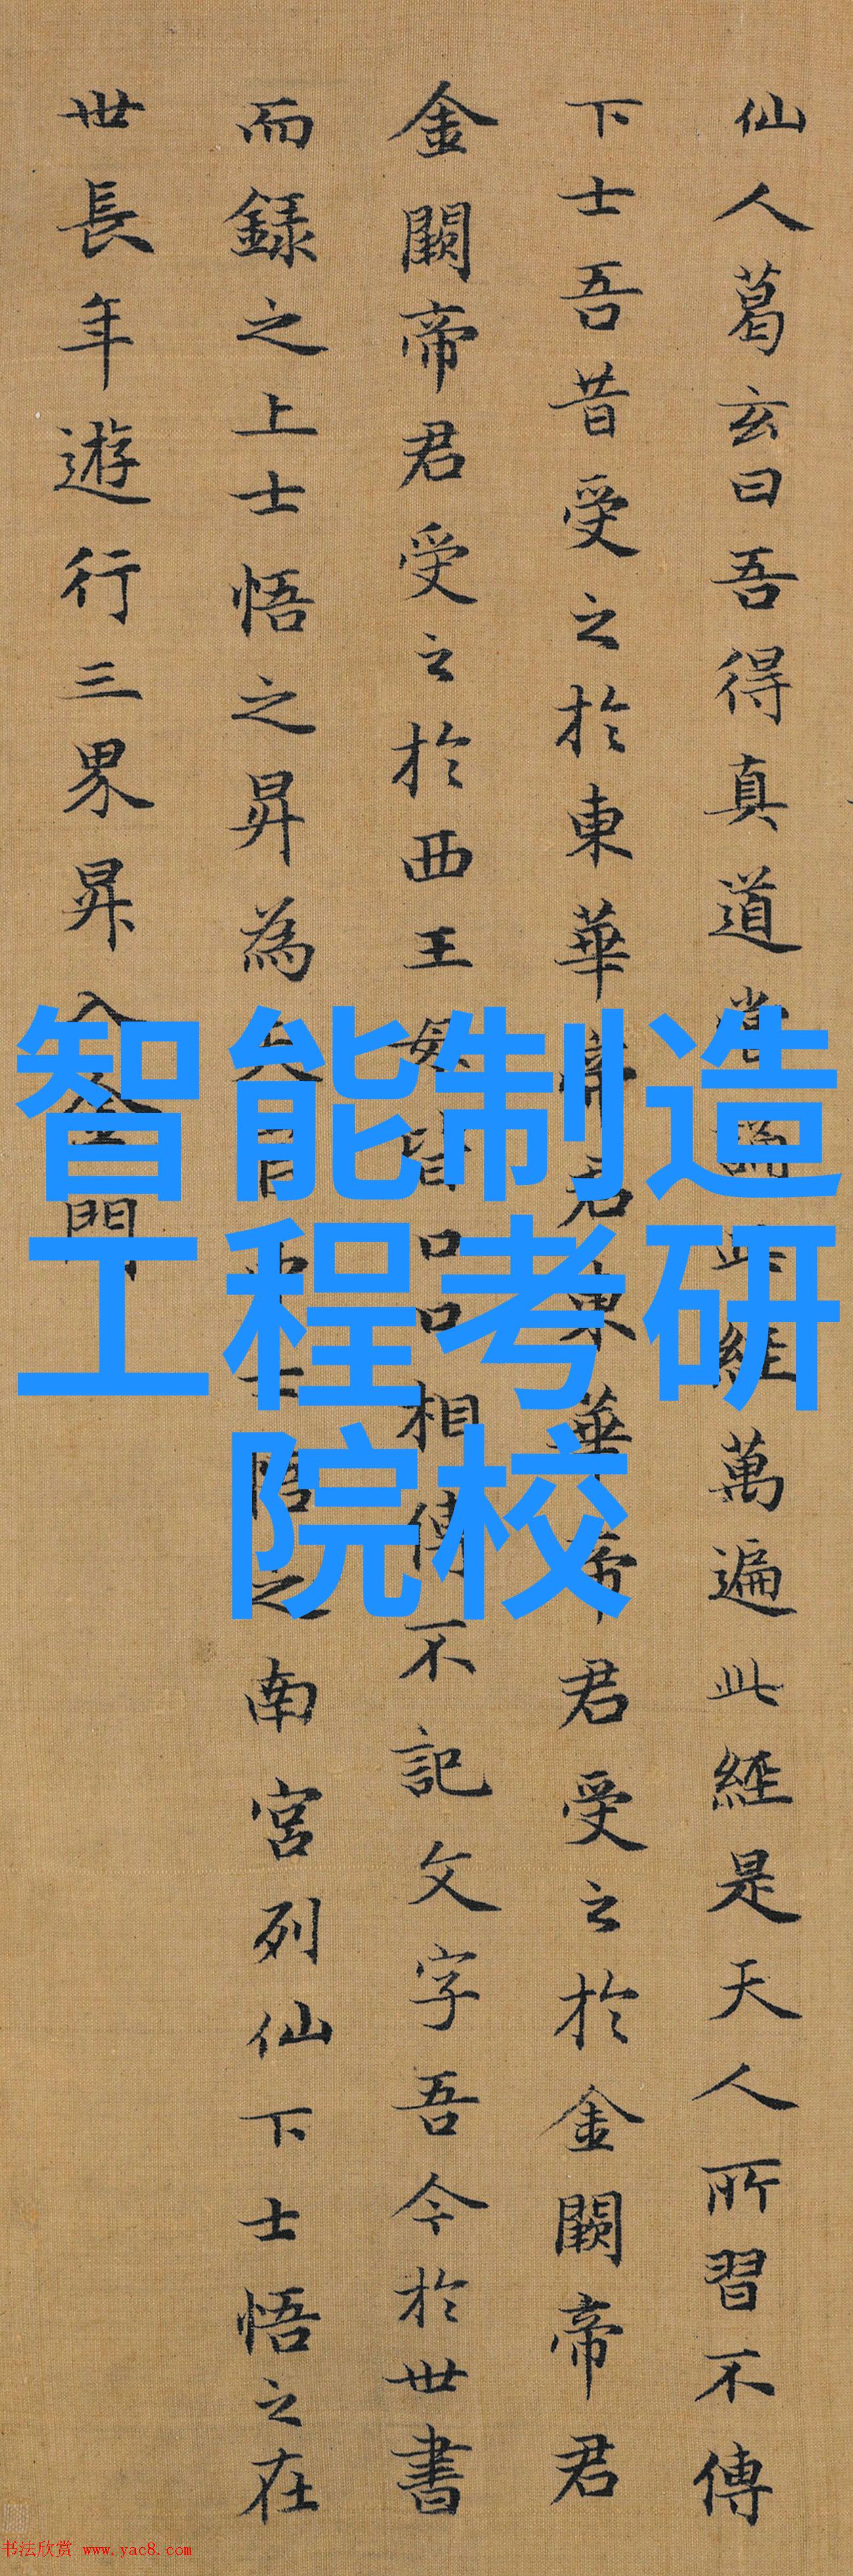 仙人葛玄曰吾得真道常誦此經萬遍此經是天人所習不傳
下士吾昔受之於東華帝君東華帝君受之於金闕帝君
金闕帝君受之於西王母皆口口相傳不記文字吾今於世書
而録之上士悟之昇為天官中士悟之南宮列仙下士悟之在
世長年遊行三界昇入金門
智能制造
工程考研
院校
书法欣赏 www.yac8.com